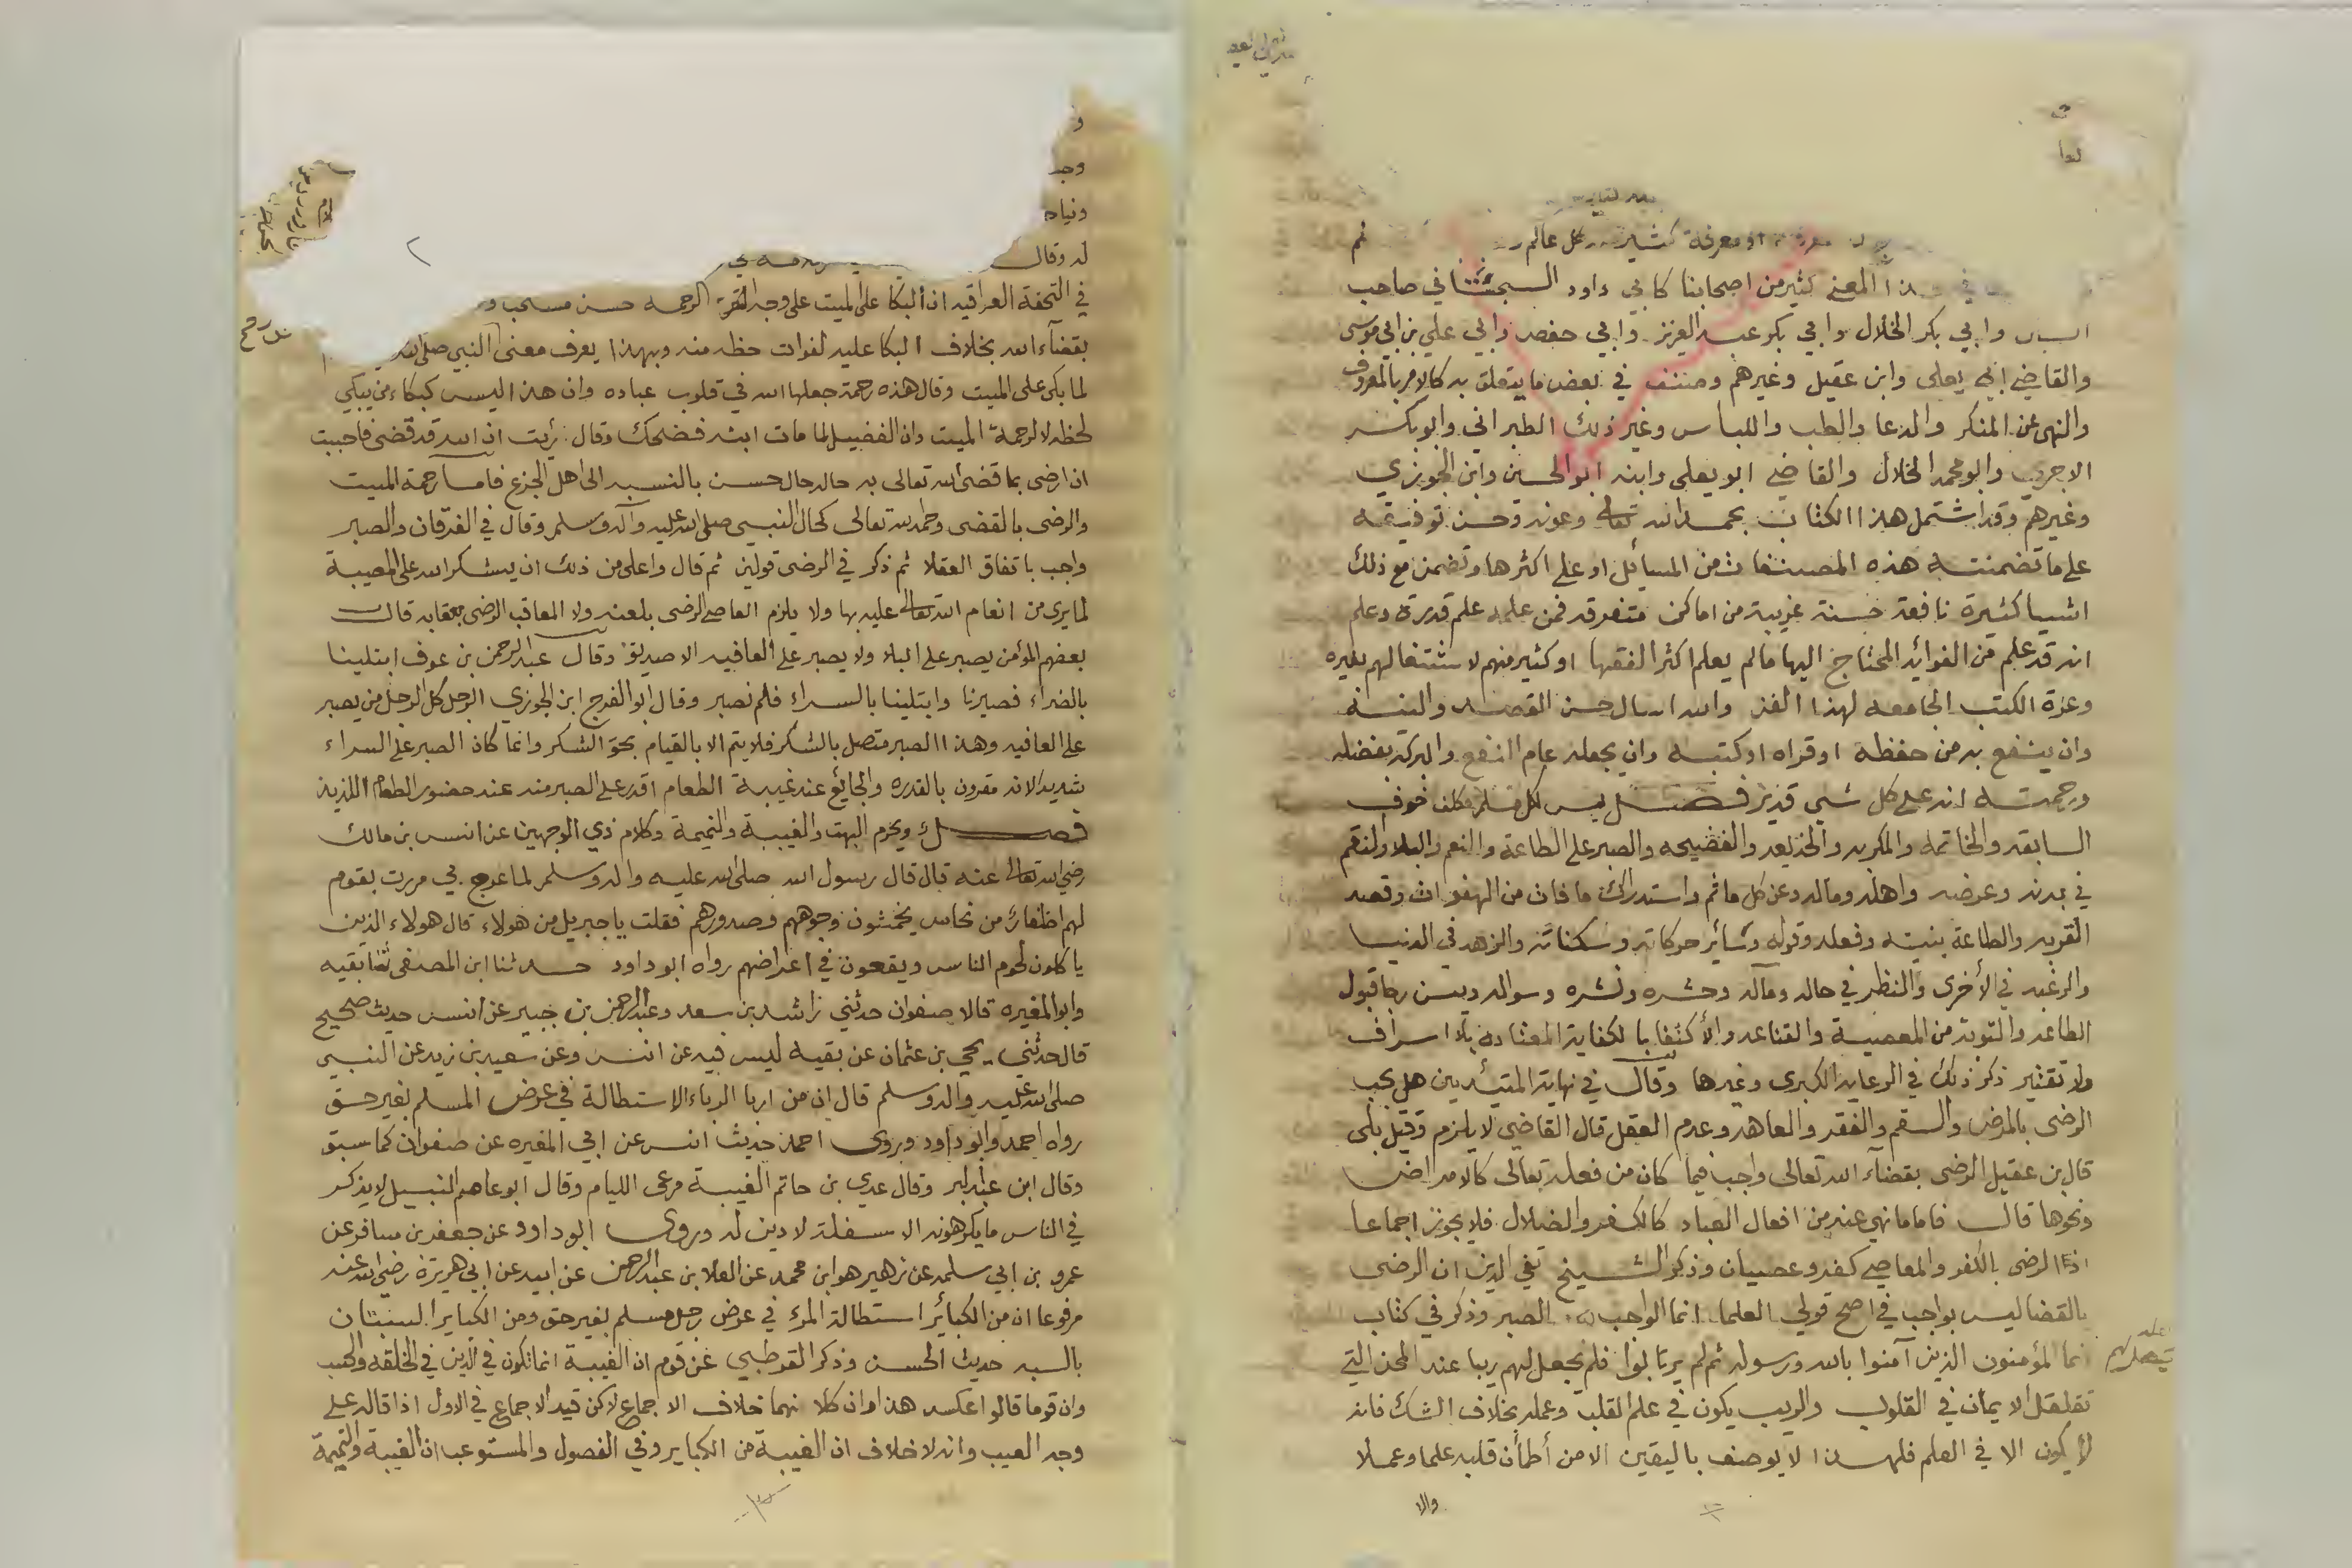 معرفة او معرفة كثير كل عالم ثم
هذا المعنى كثير من اصحابنا كابي داود السجستاني صاحب
السنن وابي بكر الخلال وابي بكر عبد العزيز وابي حفص وابي علي بن ابي موسى
والقاضي ابي يعلى وابن عقيل وغيرهم وصنف في بعض ما يتعلق به كالامر بالمعروف
والنهي عن المنكر والدعا والطب واللباس وغير ذلك الطبراني وابو بكر
الاجري وابو محمد الخلال والقاضي ابو يعلى وابنه ابو الحسين وابن الجوزي
وغيرهم وقد اشتمل هذا الكتاب بحمد الله تعالى وعونه وحسن توفيقه
على ما تضمنته هذه المصنفات من المسائل او على اكثرها وتضمن مع ذلك
اشيا كثيرة نافعة حسنة غريبة من اماكن متفرقه فمن علمه علم قدره وعلم
انه قد علم من الفوائد المحتاج اليها ما لم يعلم اكثر الفقها او كثير منهم لاشتغالهم بغيره
وعزة الكتب الجامعه لهذا الفن والله اسال حسن القصد والنية
وان ينفع به من حفظه او قراه او كتبه وان يجعله عام النفع والبركة بفضله
ورحمته انه على كل شي قدير فصل يسن لكل مسلم مكلف خوف
السابقه والخاتمه والمكربه والخديعه والفضيحه والصبر على الطاعة والنعم والبلا والنقم
في بدنه وعرضه واهله وماله وعن كل ماثم واستدراك ما فات من الهفوات وقصد
القربه والطاعة بنيته وفعله وقوله وسائر حركاته وسكناته والزهد في الدنيا
والرغبه في الأخرى والنظر في حاله ومآله وحشره ونشره وسواله ويسن رجا قبول
الطاعه والتوبة من المعصية والقناعه والأكتفا بالكفاية المعتادة بلا اسراف
ولا تقتير ذكر ذلك في الرعاية الكبرى وغيرها وقال في نهاية المبتدئين هل يجب
الرضى بالمرض والسقم والفقر والعاهه وعدم العقل قال القاضي لا يلزم وقيل بلى
قال بن عقيل الرضى بقضآء الله تعالى واجب فيما كان من فعله تعالى كالامراض
ونحوها قال فاما ما نهي عنه من افعال العباد كالكفر والضلال فلا يجوز اجماعا
اذ الرضى بالكفر والمعاصي كفر وعصيان وذكر الشيخ تقي الدين ان الرضى
بالقضا ليس بواجب في اصح قولي العلما انما الواجب الصبر وذكر في كتاب
انما المؤمنون الذين آمنوا بالله ورسوله ثم لم يرتابوا فلم يجعل لهم ريبا عند المحن التي
تقلقل الايمان في القلوب والريب يكون في علم القلب وعمله بخلاف الشك فانه
لا يكون الا في العلم فلهذا لا يوصف باليقين الا من أطمأن قلبه علما وعملا
والا
و
وجد
ونيا
له وقال
في التحفة العراقيه ان البكا على الميت على وجه الرحمه حسن مستحب و
بقضآء الله بخلاف البكا عليه لفوات حظه منه وبهذا يعرف معنى النبي صلى الله
لما بكى على الميت وقال هذه رحمة جعلها الله في قلوب عباده وان هذا ليس كبكاء من يبكي
لحظه لا لرحمة الميت وان الفضيل لما مات ابنه فضحك وقال رأيت ان الله قد قضى فاحببت
ان ارضى بما قضى الله تعالى به حاله حال حسن بالنسبه الى اهل الجزع فاما رحمة الميت
والرضى بالقضى وحمد الله تعالى كحال النبي صلى الله عليه وآله وسلم وقال في الفرقان والصبر
واجب باتفاق العقلا ثم ذكر في الرضى قولين ثم قال واعلى من ذلك ان يشكر الله على المصيبة
لما يرى من انعام الله تعالى عليه بها ولا يلزم العاصي الرضى بلعنه ولا المعاقب الرضى بعقابه قال
بعضهم المؤمن يصبر على البلا ولا يصبر على العافيه الا صديق وقال عبد الرحمن بن عوف ابتلينا
بالضراء فصبرنا وابتلينا بالسراء فلم نصبر وقال ابو الفرج ابن الجوزي الرجل كل الرجل من يصبر
على العافيه وهذا الصبر متصل بالشكر فلا يتم الا بالقيام بحق الشكر وانما كان الصبر على السراء
شديد لانه مقرون بالقدره والجائع عند غيبة الطعام اقدر على الصبر منه عند حضور الطعام اللذيذ
فصل ويحرم البهت والغيبة والنميمة وكلام ذي الوجهين عن انس بن مالك
رضى الله تعالى عنه قال قال رسول الله صلى الله عليه واله وسلم لما عرج بي مررت بقوم
لهم اظفار من نحاس يخمشون وجوههم وصدورهم فقلت يا جبريل من هولاء قال هولاء الذين
ياكلون لحوم الناس ويقعون في اعراضهم رواه ابو داود حدثنا ابن المصفى ثنا بقيه
وابو المغيره قالا صفوان حدثني راشد بن سعد وعبد الرحمن بن جبير عن انس حديث صحيح
قال حدثني يحي بن عثمان عن بقيه ليس فيه عن انس وعن سعيد بن زيد عن النبي
صلى الله عليه واله وسلم قال ان من اربا الرباء الاستطالة في عرض المسلم بغير حق
رواه احمد وابو داود وروى احمد حديث انس عن ابي المغيره عن صفوان كما سبق
وقال ابن عبد البر وقال عدي بن حاتم الغيبة مرعى الليام وقال ابو عاصم النبيل لا يذكر
في الناس ما يكرهونه الا سفلة لا دين له وروى ابو داود عن جعفر بن مسافر عن
عمرو بن ابي سلمه عن زهير هو ابن محمد عن العلا بن عبد الرحمن عن ابيه عن ابي هريرة رضى الله عنه
مرفوعا ان من الكبائر استطالة المرء في عرض رجل مسلم بغير حق ومن الكباير السبتان
بالسبه حديث الحسن وذكر القرطبي عن قوم ان الغيبة انما تكون في الدين في الخلقه والحسب
وان قوما قالوا عكس هذا وان كلا نهما خلاف الاجماع لاكن قيد الاجماع في الاول اذا قاله على
وجه العيب وانه لا خلاف ان الغيبة من الكباير وفي الفصول والمستوعب ان الغيبة والنميمة